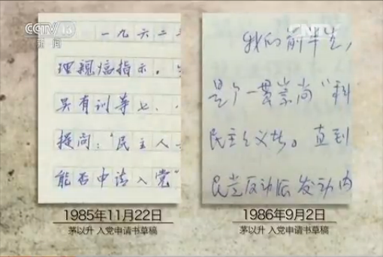 CCTV
新闻
一九六二
理親临指示。
吴有训等七、
提问:“民主人
能否申请入党”
1985年11月22日
茅以升 入党申请书草稿
我的前半生,
是个一贯崇尚“科
民主主义者。直到
民党反动派发动内
1986年9月2日
茅以升 入党申请书草稿